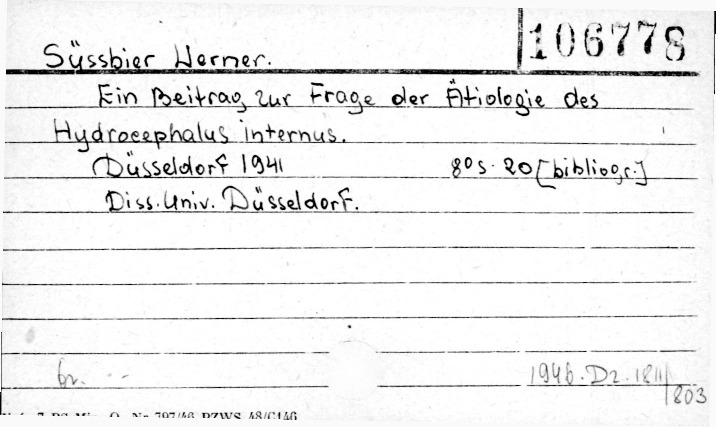 106778
Süssbier Werner.
Ein Beitrag zur Frage der Ätiologie des
Hydrocephalus internus.
Düsseldorf 1941 8º s. 20 [bibliogr.]
Diss. Univ. Düsseldorf.
br.
1946. Dz. 1811/803
797/46 PZWS 48/C146